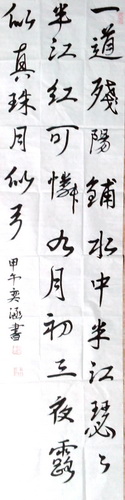 一道殘陽鋪水中半江瑟々
半江紅可憐九月初三夜露
似真珠月似弓
甲午奕涵書